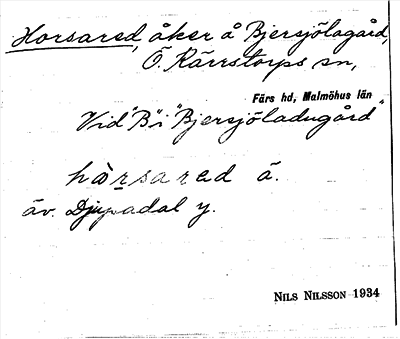 Horsared, åker å Bjersjölagård,
Ö. Kärrstorps sn,
Färs hd, Malmöhus län
Vid "B" i "Bjersjöladugård"
hàrsared ā.
äv. Djupadal y.
NILS NILSSON 1934